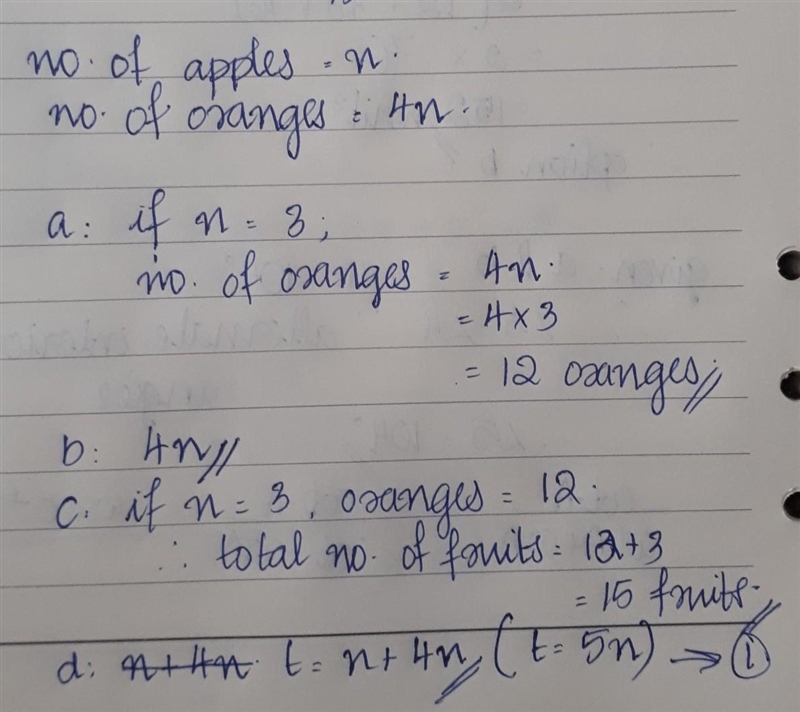 no. of apples = n.
no. of oranges = 4n.
a: if n = 3;
no. of oranges = 4n.
= 4 × 3
= 12 oranges//
b: 4n//
c. if n = 3, oranges = 12.
∴ total no. of fruits = 12+3
= 15 fruits.//
d: n+4n. t = n + 4n// (t = 5n) → (i)